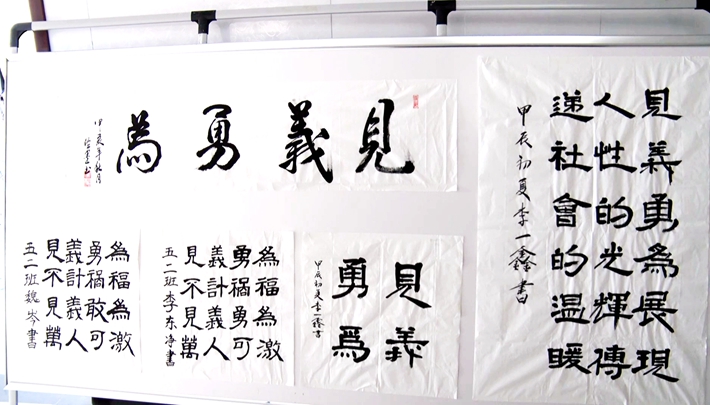 見義勇為
見義勇為展現
人性的光輝傳
递社會的温暖
甲辰初夏李一鑫書
見義
勇爲
甲辰初夏李一鑫書
見義勇為
不計禍福
見義勇為
萬人可激
五二班李东净書
見義勇為
不計禍福
見義敢為
萬人可激
五二班魏岑書